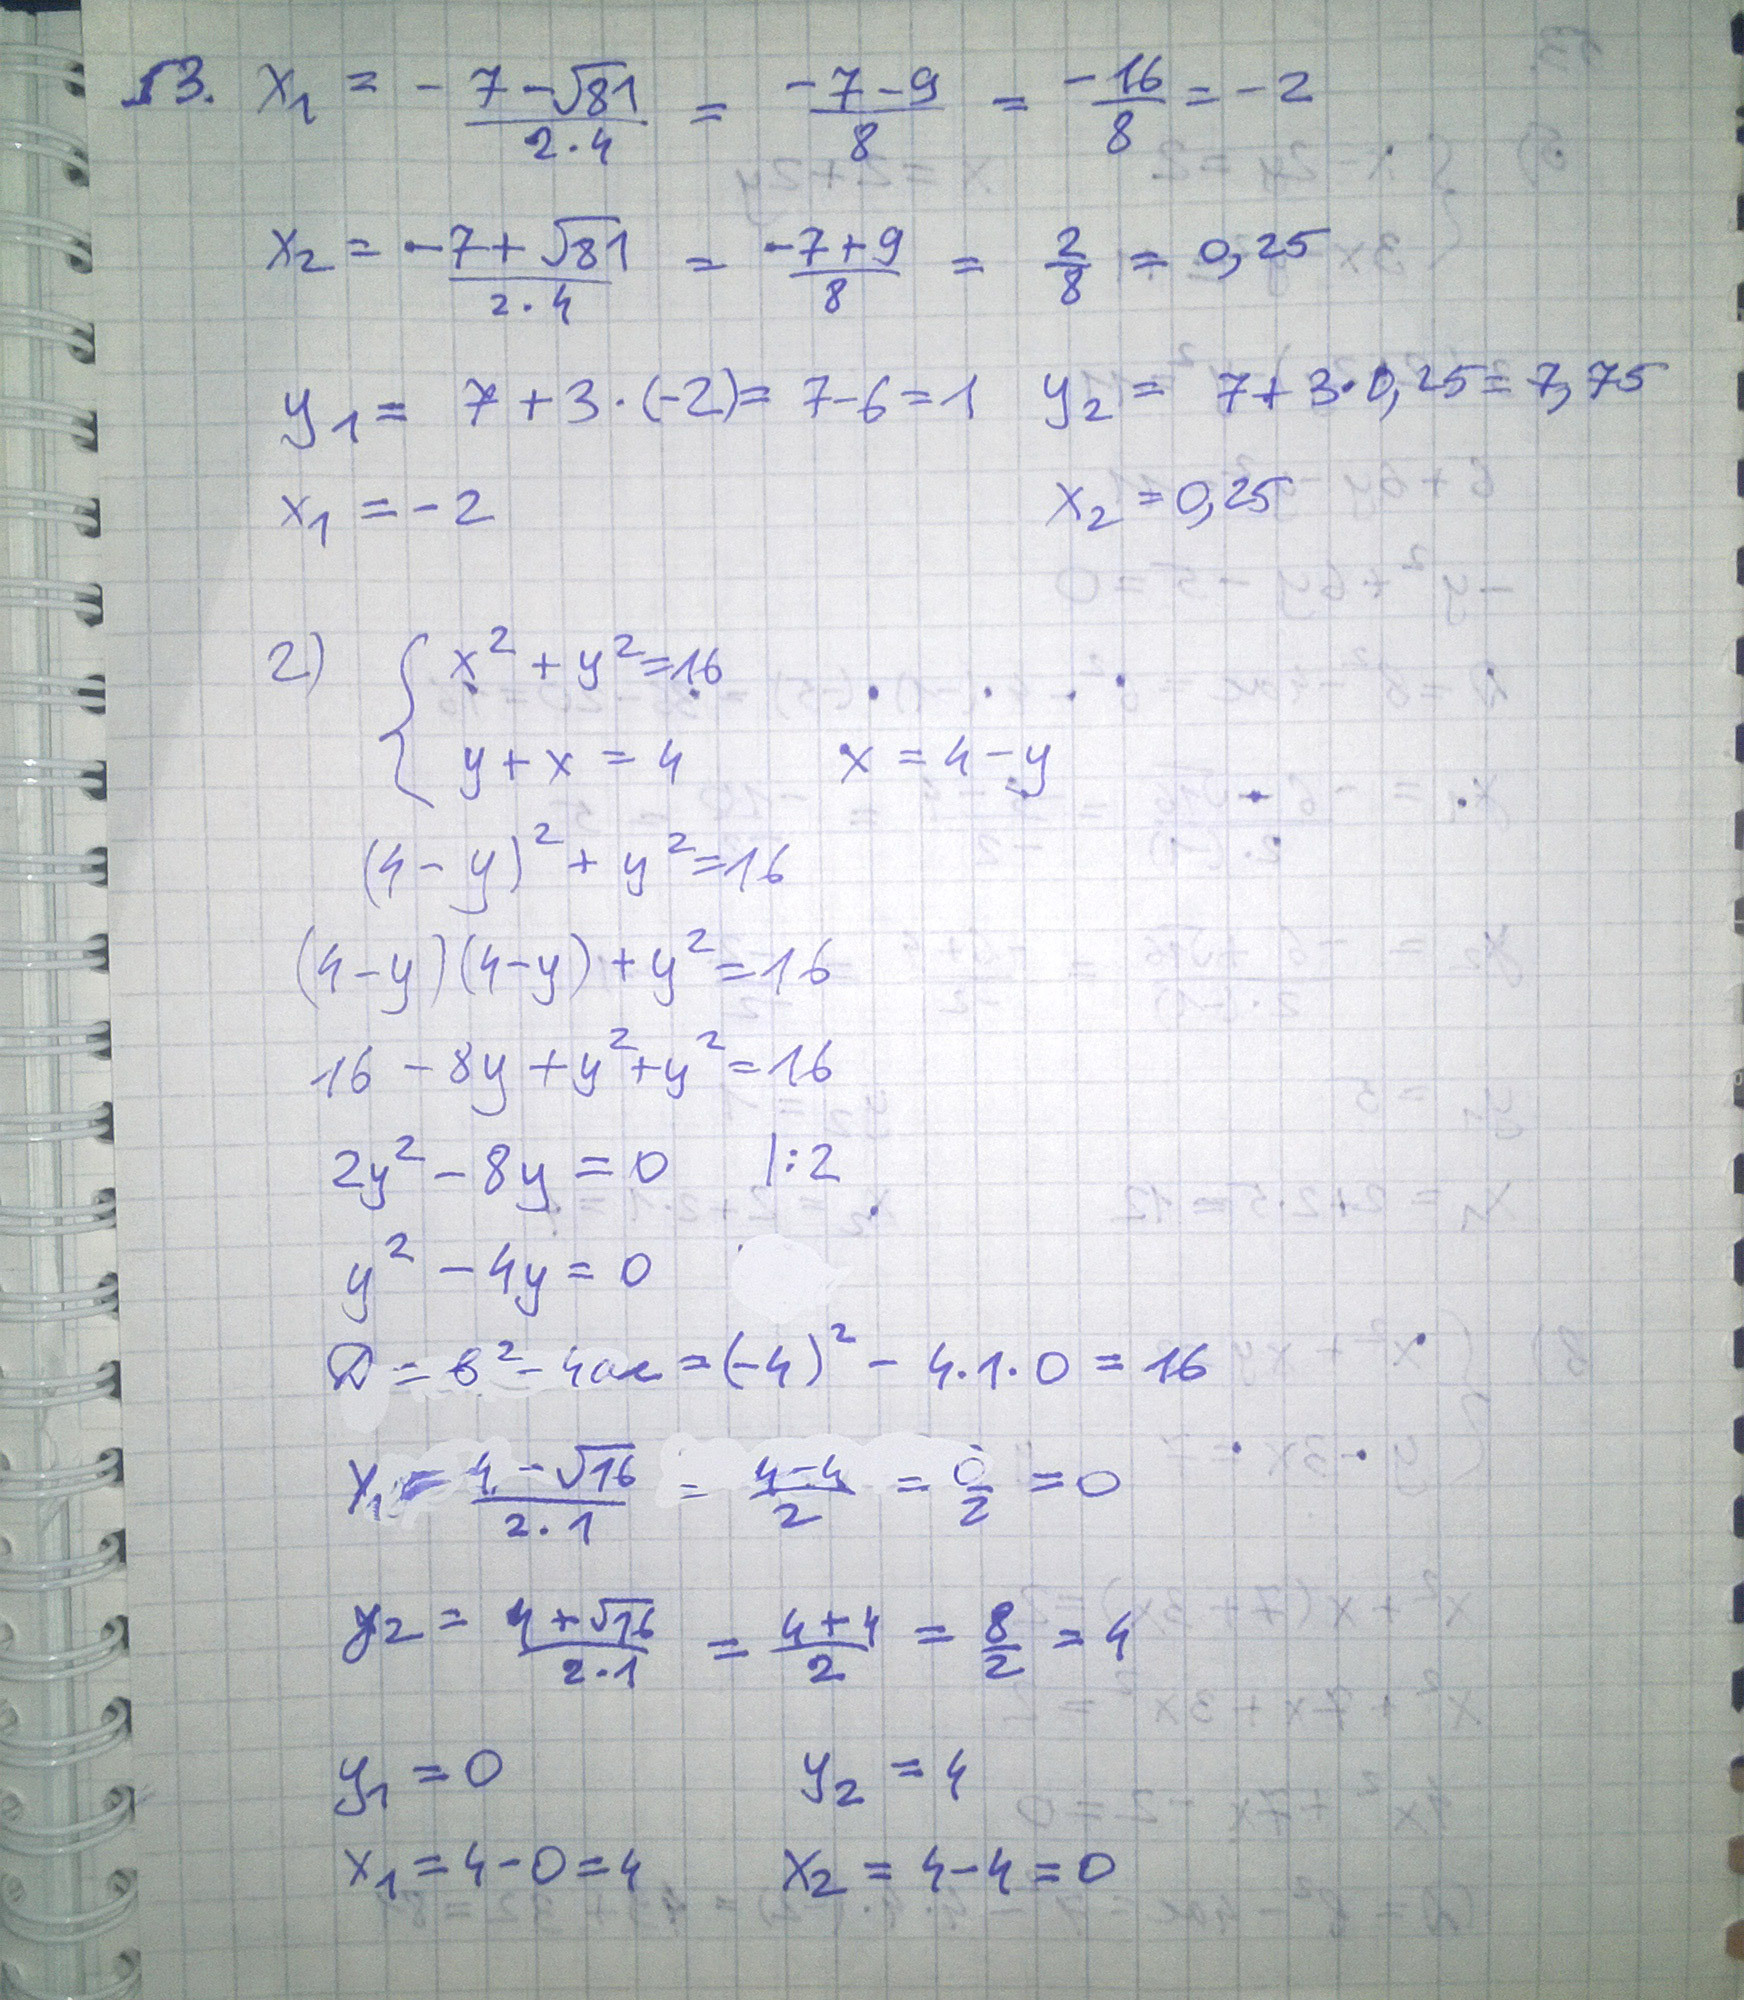 13. x₁ = -7-√81 / 2·4 = -7-9 / 8 = -16/8 = -2
x₂ = -7+√81 / 2·4 = -7+9 / 8 = 2/8 = 0,25
y₁ = 7+3·(-2) = 7-6 = 1 y₂ = 7+3·0,25 = 7,75
x₁ = -2 x₂ = 0,25
2) { x² + y² = 16
y + x = 4 x = 4 - y
(4-y)² + y² = 16
(4-y)(4-y) + y² = 16
16 - 8y + y² + y² = 16
2y² - 8y = 0 |:2
y² - 4y = 0
D = в² - 4ac = (-4)² - 4·1·0 = 16
y₁ = 4-√16 / 2·1 = 4-4 / 2 = 0/2 = 0
y₂ = 4+√16 / 2·1 = 4+4 / 2 = 8/2 = 4
y₁ = 0 y₂ = 4
x₁ = 4-0 = 4 x₂ = 4-4 = 0